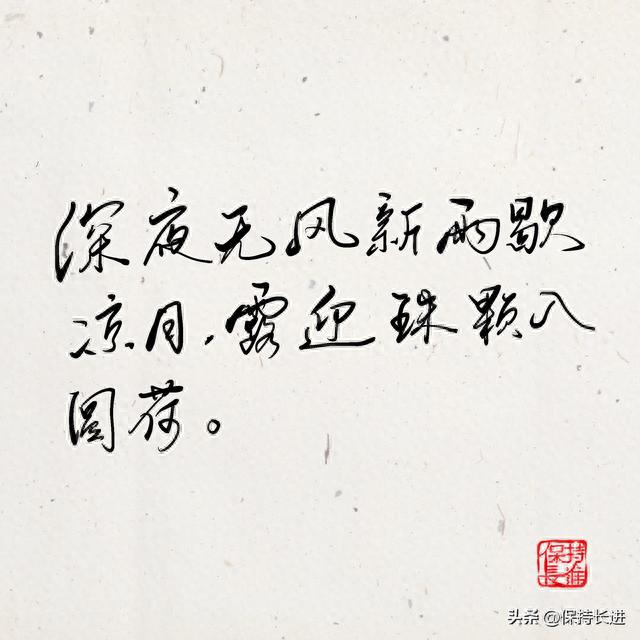 深夜无风新雨歇
凉月,露迎珠颗入
圆荷。
保持长进
头条 @保持长进